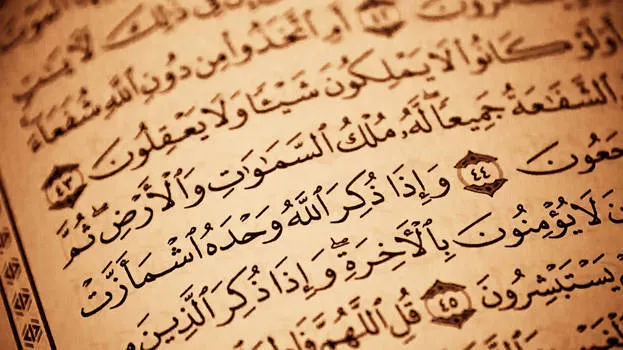 فِي ذَٰلِكَ لَآيَٰتٍ
أَمِ ٱتَّخَذُوا۟ مِن دُونِ ٱللَّهِ شُفَعَآءَ
أَوَلَوْ كَانُوا۟ لَا يَمْلِكُونَ شَيْـًٔا وَلَا يَعْقِلُونَ ٤٣
ٱلشَّفَٰعَةُ جَمِيعًا ۖ لَّهُۥ مُلْكُ ٱلسَّمَٰوَٰتِ وَٱلْأَرْضِ ۖ ثُمَّ
جَعُونَ ٤٤ وَإِذَا ذُكِرَ ٱللَّهُ وَحْدَهُ ٱشْمَأَزَّتْ
نَ لَا يُؤْمِنُونَ بِٱلْأَخِرَةِ ۖ وَإِذَا ذُكِرَ ٱلَّذِينَ
يَسْتَبْشِرُونَ ٤٥ قُلِ ٱللَّهُمَّ فَاطِرَ